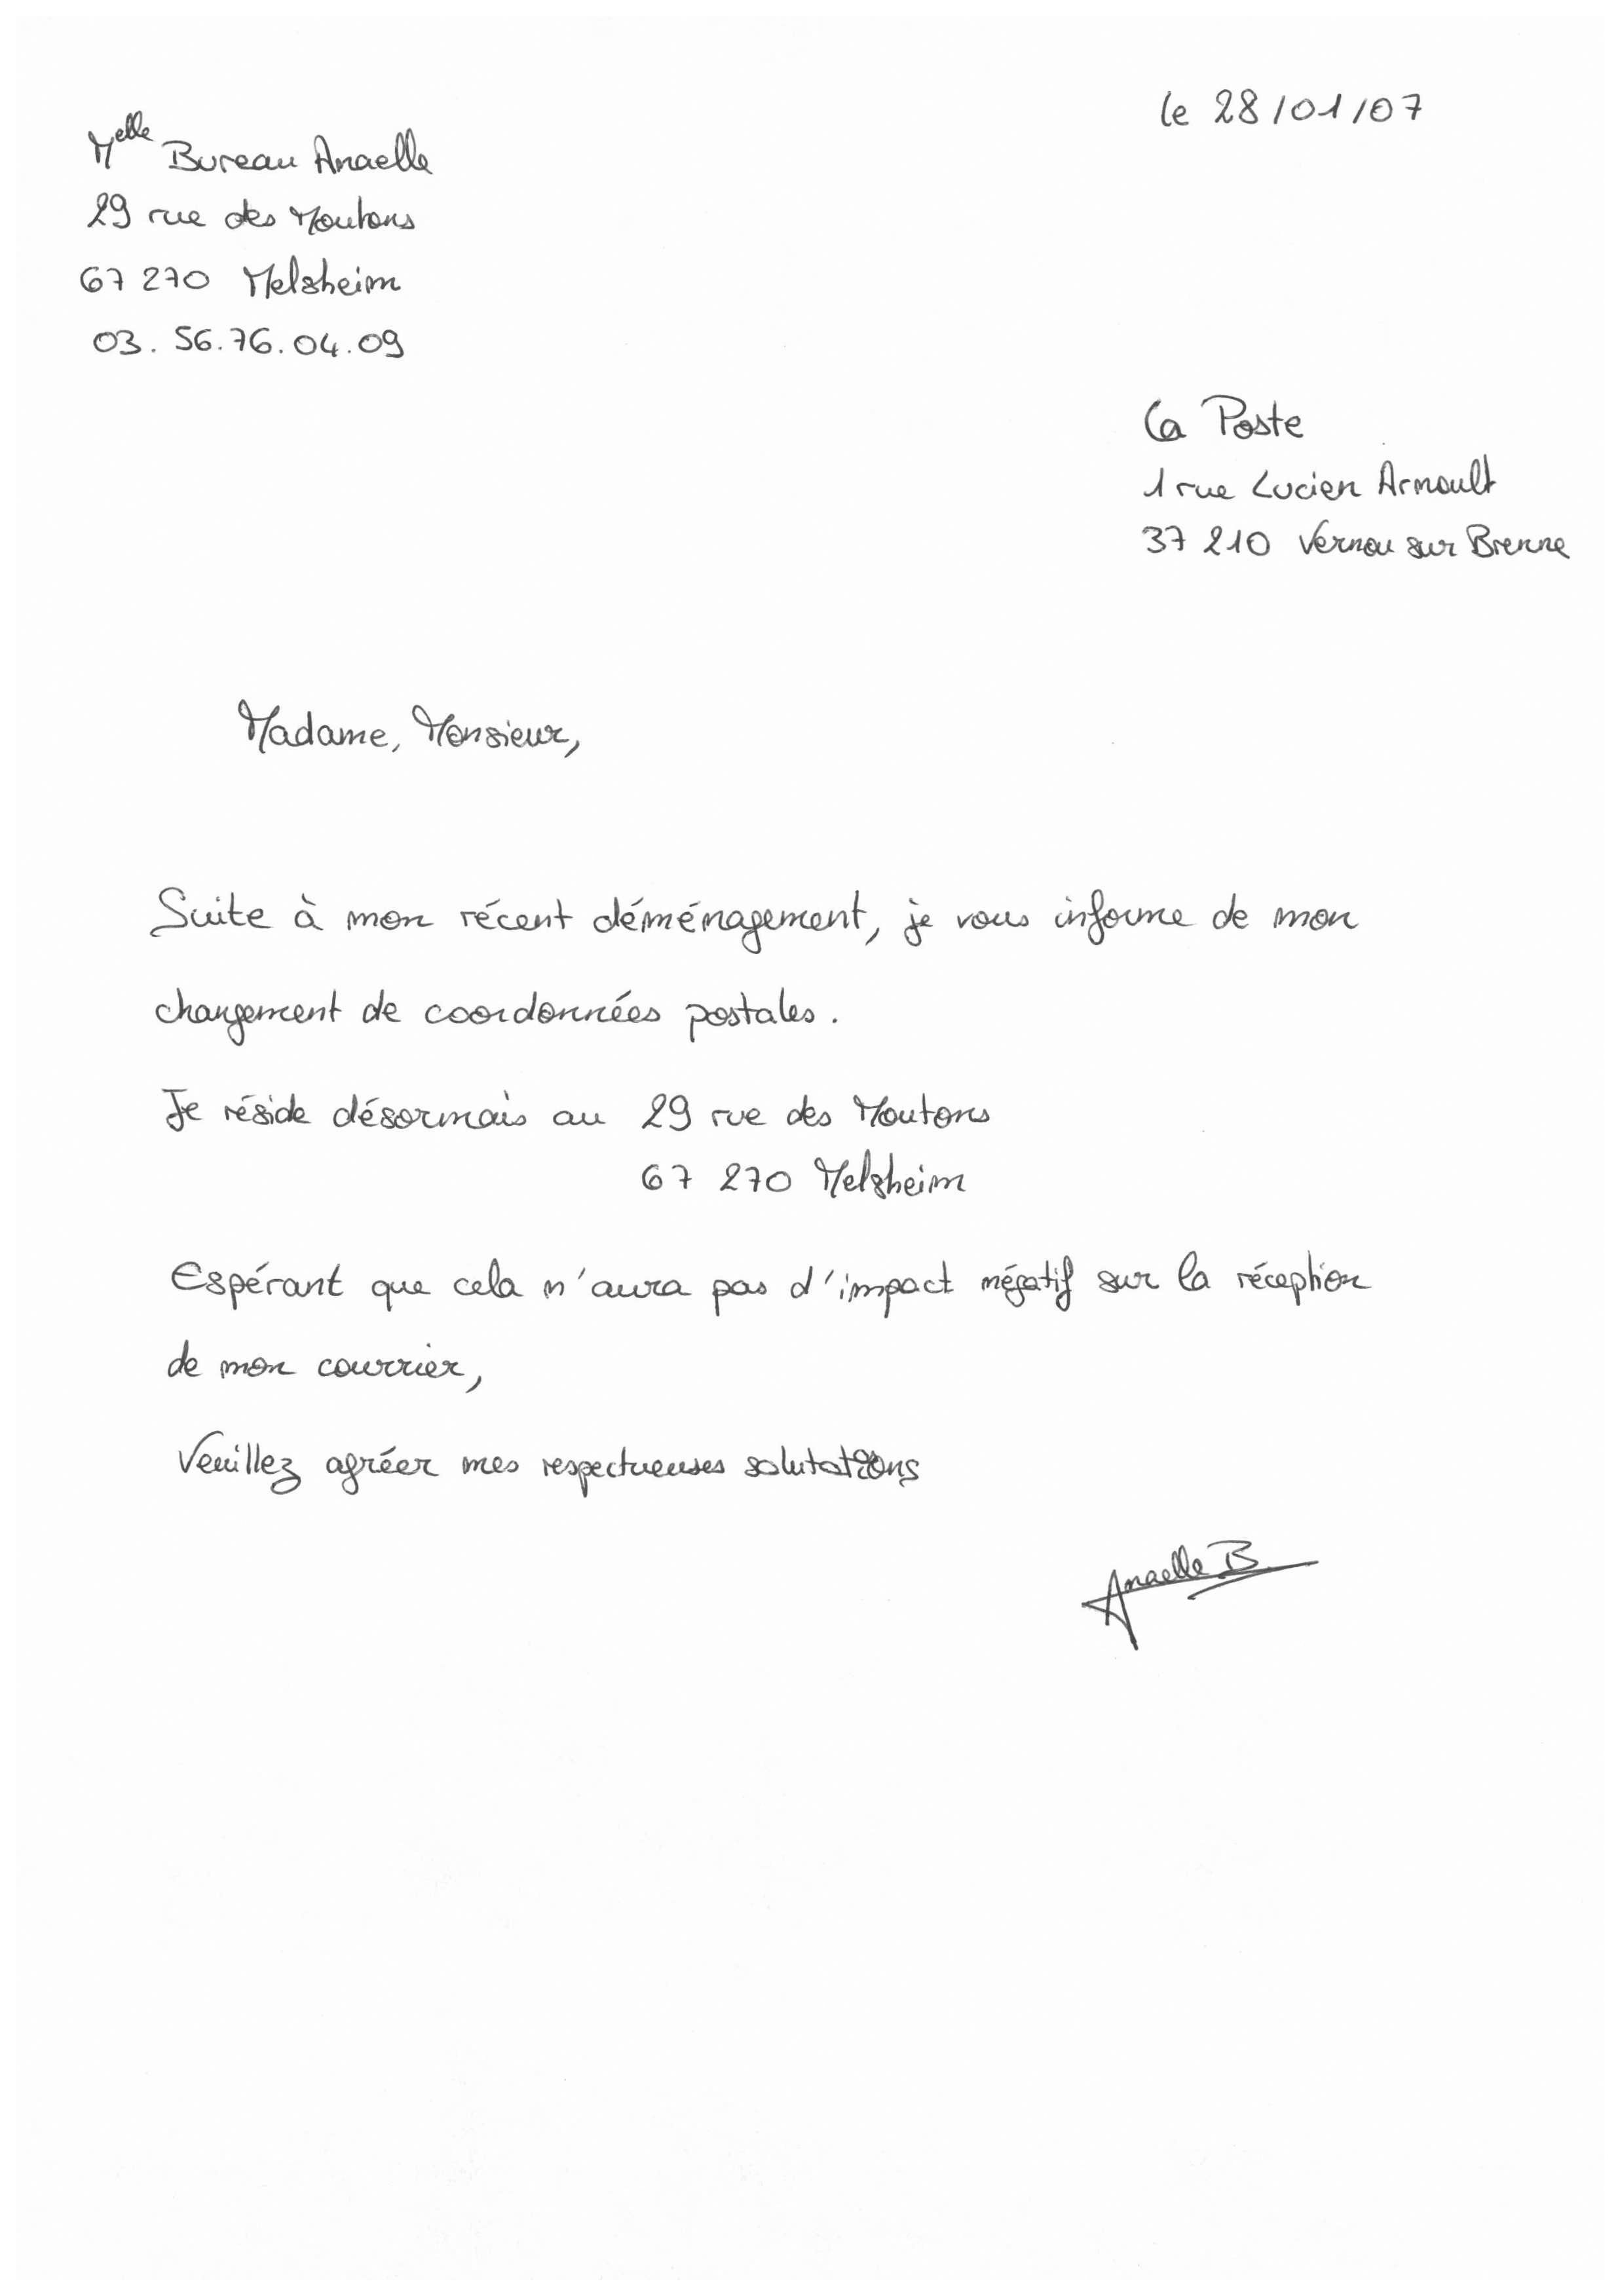 le 28/01/07
Melle Bureau Anaelle
29 rue des Moutons
67 270 Melsheim
03.56.76.04.09
La Poste
1 rue Lucien Arnoult
37 210 Vernou sur Brenne
Madame, Monsieur,
Suite à mon récent déménagement, je vous informe de mon
changement de coordonnées postales.
Je réside désormais au 29 rue des Moutons
67 270 Melsheim
Espérant que cela n'aura pas d'impact négatif sur la réception
de mon courrier,
Veuillez agréer mes respectueuses salutations
Anaelle B